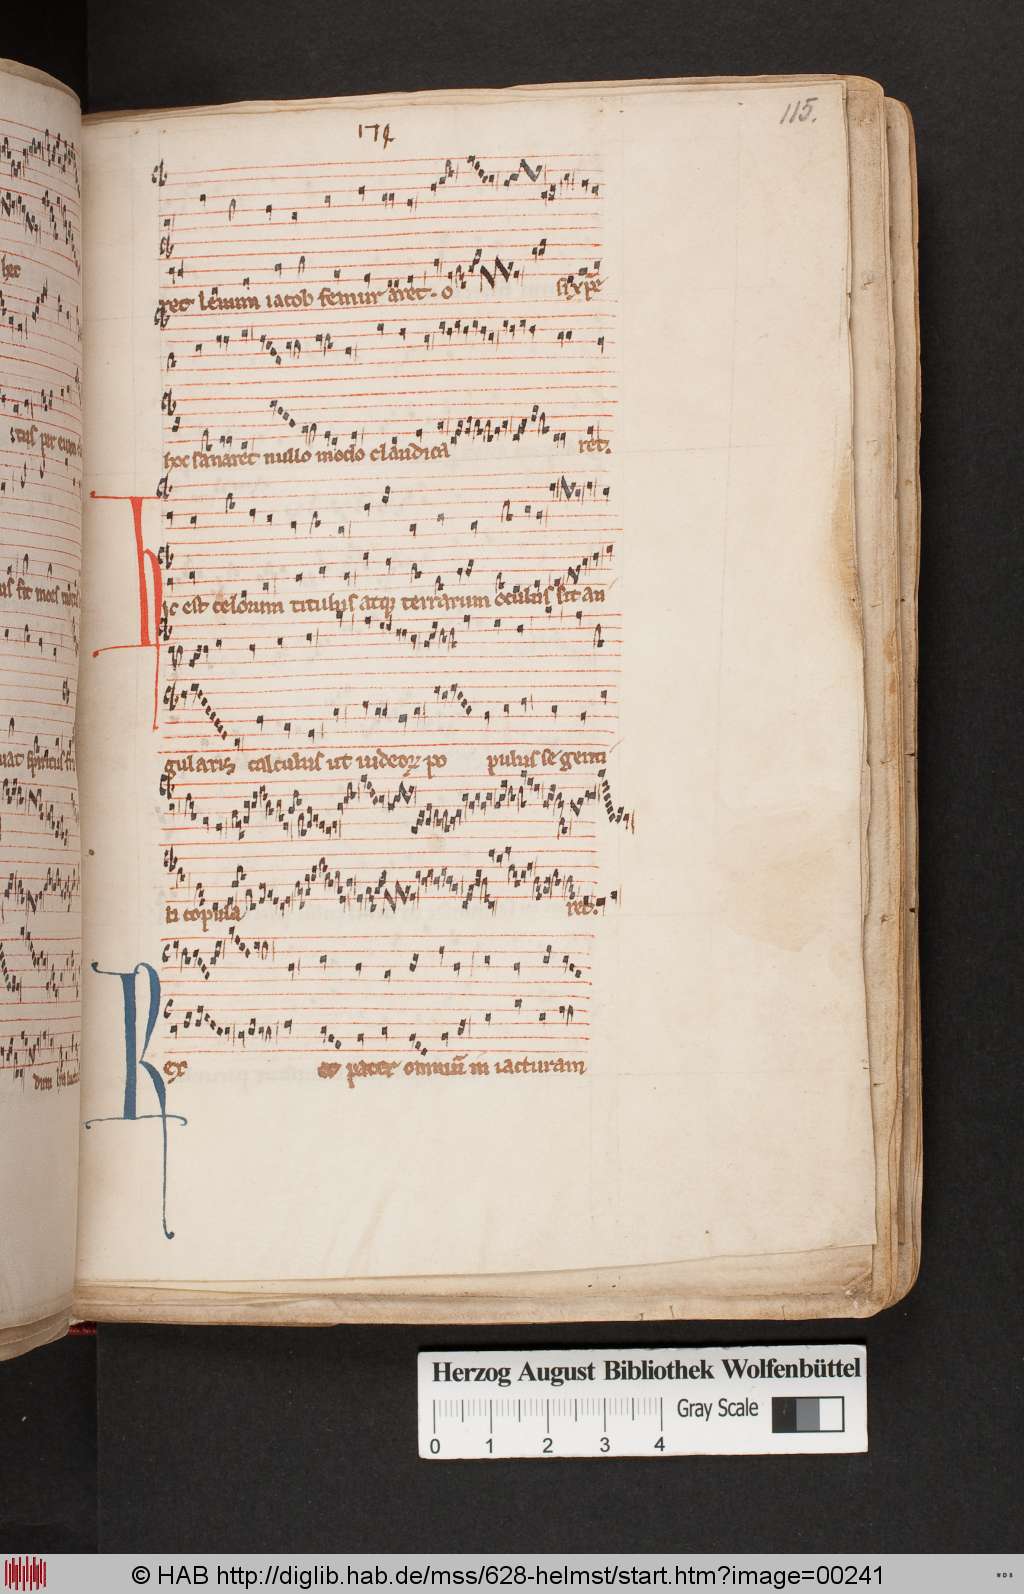 115.
174
ret lenum iacob femur aret. o si xp̄e
hoc sanaret nullo modo claudica ret.
Hic est celorum titulus atqꝫ terrarum oculus sit an
gularis calculus ut iudeoꝝ po pulus se genti
li copula ret.
Rex et pater omniū in iacturam
hec
stus per
uat spiritus
Herzog August Bibliothek Wolfenbüttel
0 1 2 3 4
Gray Scale
© HAB http://diglib.hab.de/mss/628-helmst/start.htm?image=00241